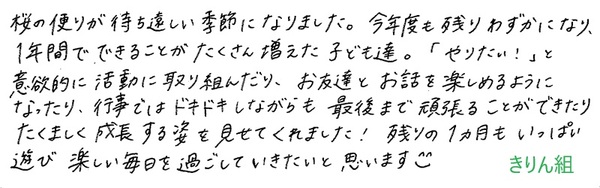 桜の便りが待ち遠しい季節になりました。今年度も残りわずかになり、
1年間でできることがたくさん増えた子ども達。「やりたい!」と
意欲的に活動に取り組んだり、お友達とお話を楽しめるように
なったり、行事ではドキドキしながらも最後まで頑張ることができたり
たくましく成長する姿を見せてくれました!残りの1カ月もいっぱい
遊び楽しい毎日を過ごしていきたいと思います☺
きりん組